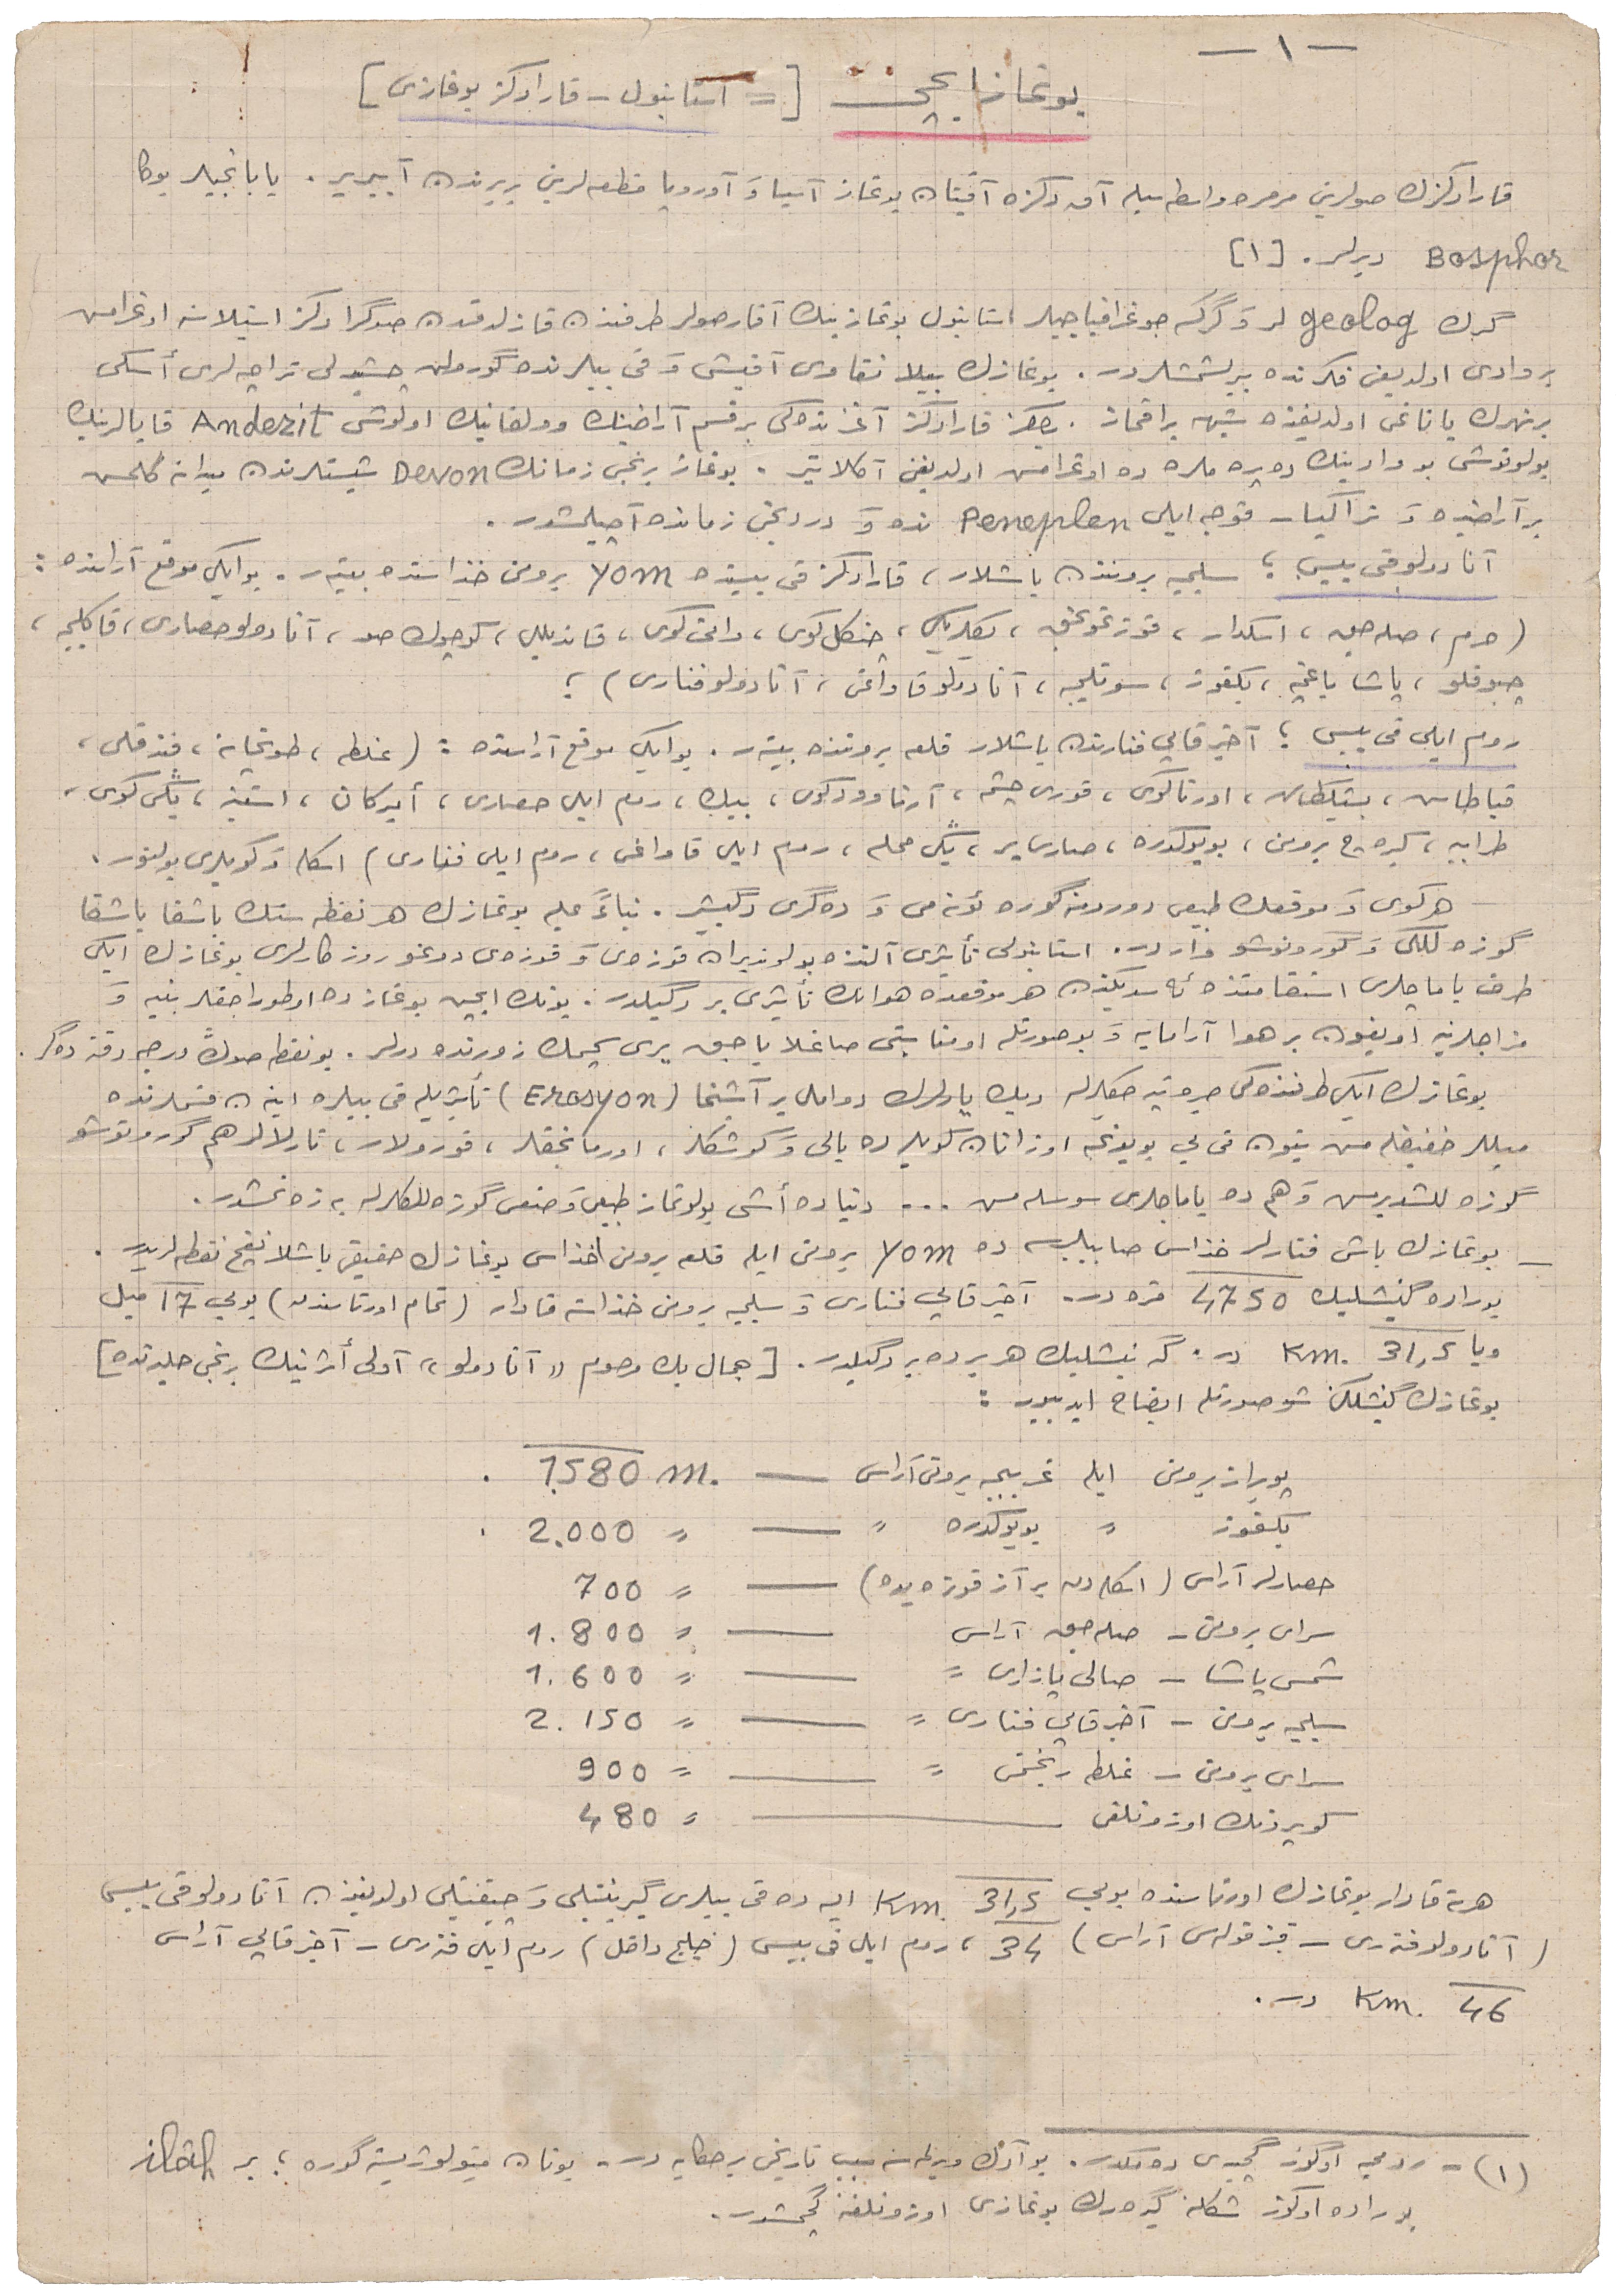 — ١ —
بوغاز ایچی [= استانبول - قارا دكز بوغازی]
قارا دكزك صولرینی مرمره واسطه سیله آق دكزه آقیتان بوغاز آسیا وَ آوروپا قطعه لرینی بربرندن آییریر . یابانجیلر بوكا
Bosphor دیرلر . [١]
گرك geolog لر وَ گركسه جوغرافیاجیلر استانبول بوغازینك آقار صولر طرفندن قازلدقدن صوڭرا دكز استیلاسنه اوغرامش
بر وادی اولدیغی فكرنده برلشمشلردر . بوغازك بیلا نقاوی آقیشی وَ قی ییلرنده گورولن چشیدلی تراچه لری أسكی
بر نهرك یاتاغی اولدیغنده شبهه براقماز . یالكز قارا دكز آغزنده كی بر قسم آراضینك وولقانیك اولوشی Andezit قایالرینك
بولونوشی بو وادینك ده پره ملره ده اوغرامش اولدیغنی آكلاتیر . بوغاز برنجی زمانك Devon شیستلرندن میدانه گلمش
بر آراضیده وَ تراكیا - قوجه ایلی Peneplen نده وَ دردنجی زمانده آچیلمشدر .
آنادولو قی ییسی ؛ سلیمیه بروننده باشلار ، قارا دكز قی ییسنده یوم yom برونی خذاسنده بیتر . بو ایكی موقع آراسنده :
(حرم ، صلاجق ، اسكدار ، قوزغونجق ، بكلربكی ، چنكل كوی ، وانی كوی ، قاندیللی ، كوچوك صو ، آنادولو حصاری ، قاڭلیجه ،
چبوقلو ، پاشا باغچه ، بكقوز ، سوتلیجه ، آنادولو قاواغی ، آنادولو فناری) ؛
روم ایلی قی ییسی ؛ آخیر قاپی فنارندن باشلار قلعه بروننده بیتر . بو ایكی موقع آراسنده : (غلطه ، طوپخانه ، فندقلی ،
قباطاش ، بشیكطاش ، اورتاكوی ، قوری چشمه ، آرناوودكوی ، ببك ، روم ایلی حصاری ، أمیركان ، استنیه ، یڭی كوی ،
طرابیه ، كیرەچ برونی ، بویوكدره ، صاری یر ، یڭی محله ، روم ایلی قاواغی ، روم ایلی فناری) اسكله وَ كویلری بولنور .
هر كوی وَ موقعك طبیعی دورومنه گوره ئونه می وَ ده گری دگیشیر . بناءً علیه بوغازك هر نقطه سنك باشقا باشقا
گوزه للكی وَ گورونوشو واردر . استانبولی تأثیری آلتنده بولوندیران قوزه ی وَ قوزه ی دوغو روزكارلری بوغازك ایكی
طرف یاماچلری استقامتنده ئه سدیكندن هر موقعده هوانك تأثیری بر دگیلدر . بونك ایچین بوغازده اوطوراجقلر بنیه وَ
مزاجلرینه اویغون بر هوا آرامایه وَ بو صورتله اومناسبتی صاغلایاجق یری سچمك زورنده درلر . بو نقطه صوڭ درجه دقته دگر .
بوغازك ایكی طرفنده كی صیرتیه چكیلر دیك یارلرك دواملی بر آشنما (Erosyon) تأثیریله قی ییلره اینن قسملرنده
میللر خفیفلەمش بتون قی یی بویونجه اوزانان كویلرده یالی وَ كوشكلر ، اورمانجقلر ، قورولار ، تارلالر هم گورونوشو
گوزه للشدیرمش وَ هم ده یاماچلری سوسله مش ... دنیاده أشی بولونماز طبیعی وَ صنعی گوزه للكلرله بەزەنمشدر .
— بوغازك باش فنارلر خذاسی صاییلیرسه ده yom برونی ایله قلعه برونی خذاسی بوغازك حقیقی باشلانغیج نقطه لریدر .
بوراده گنیشلیك 4750 متره در . آخیر قاپی فناری وَ سلیمیه برونی خذاسنه قادار (تمام اورتاسندن) بویی 17 میل
ویا 31,5 Km. در . گنیشلیك هر یرده بر دگیلدر . [جمال بك مرحوم «آنادولو» آدلی أثرینك برنجی جلدنده]
بوغازك گنیشلكنی شو صورتله ایضاح ایدییور :
پویراز برونی ایله غریبجه برونی آراسی — 1580 m. .
بكقوز " بویوكدره " — " 2.000 .
حصارلر آراسی (اسكله دن بر آز قوزه یده) — " 700
سرای برونی - صلاجق آراسی — " 1.800
شمسی پاشا - صالی پازاری " — " 1.600
سلیمیه برونی - آخیر قاپی فناری " — " 2.150
سرای برونی - غلطه ریختمی " — " 900
كوپرینك اوزونلغی — " 480
هر نه قادار بوغازك اورتاسنده بویی 31,5 Km. ایسه ده قی ییلری گیرینتیلی وَ چیقنتیلی اولدیغندن آنادولو قی ییسی
(آنادولو فنری - قیز قوله سی آراسی) 34 ، روم ایلی قی ییسی (خلیج داخل) روم ایلی فنری - آخیر قاپی آراسی
46 Km. در .
(١) - رومجه اوكوز گچیدی دیمكدر . بو آدك ویریلمه سنه سبب تاریخی بر حكایه در . یونان میتولوژیسنه گوره ؛ بر ilâh
بوراده اوكوز شكلنه گیره رك بوغازی اوزونلغنه گچمشدر .